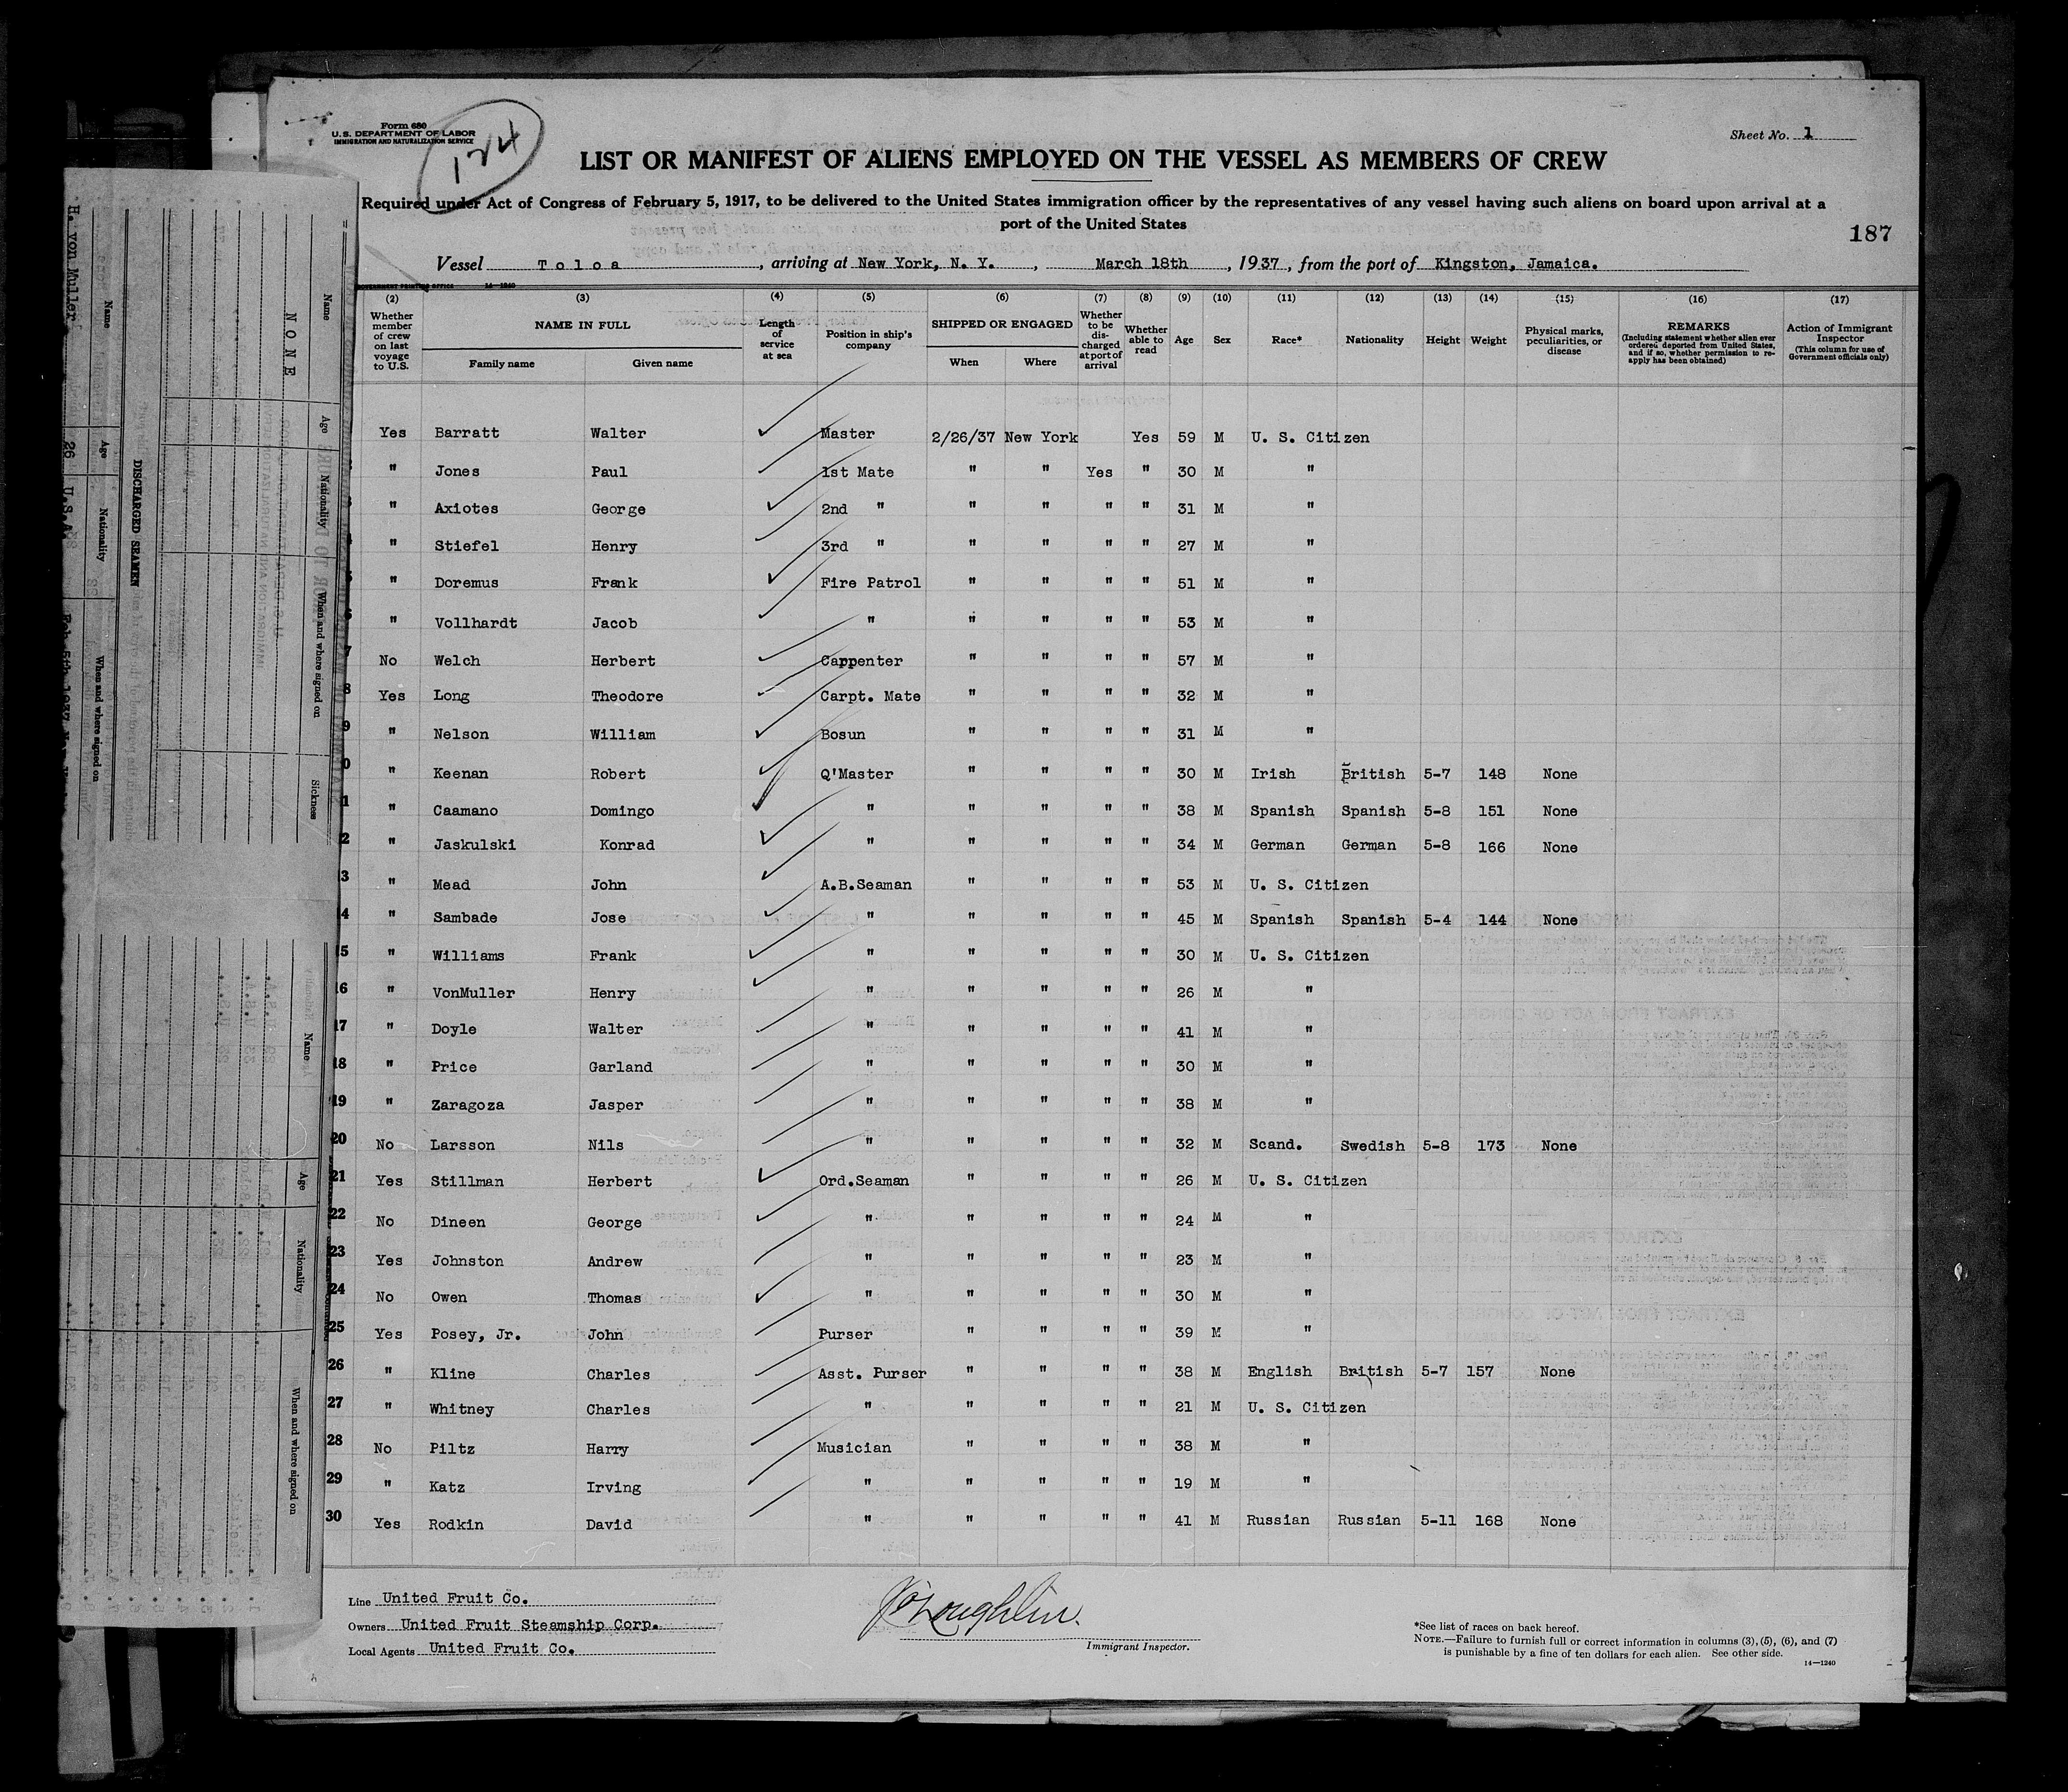 Form 680
U.S. DEPARTMENT OF LABOR
IMMIGRATION AND NATURALIZATION SERVICE
124
Sheet No. 1
LIST OR MANIFEST OF ALIENS EMPLOYED ON THE VESSEL AS MEMBERS OF CREW
Required under Act of Congress of February 5, 1917, to be delivered to the United States immigration officer by the representatives of any vessel having such aliens on board upon arrival at a
port of the United States
187
Vessel Toloa, arriving at New York, N. Y., March 18th, 1937, from the port of Kingston, Jamaica.
(2) (3) (4) (5) (6) (7) (8) (9) (10) (11) (12) (13) (14) (15) (16) (17)
Whether member of crew on last voyage to U.S. NAME IN FULL Family name Given name Length of service at sea Position in ship's company SHIPPED OR ENGAGED When Where Whether to be discharged at port of arrival Whether able to read Age Sex Race* Nationality Height Weight Physical marks, peculiarities, or disease REMARKS (Including statement whether alien ever ordered deported from United States, and if so, whether permission to re-apply has been obtained) Action of Immigrant Inspector (This column for use of Government officials only)
Yes Barratt Walter Master 2/26/37 New York Yes 59 M U. S. Citizen
" Jones Paul 1st Mate " " Yes " 30 M "
3 " Axiotes George 2nd " " " " " 31 M "
4 " Stiefel Henry 3rd " " " " " 27 M "
5 " Doremus Frank Fire Patrol " " " " 51 M "
6 " Vollhardt Jacob " " " " " 53 M "
7 No Welch Herbert Carpenter " " " " 57 M "
8 Yes Long Theodore Carpt. Mate " " " " 32 M "
9 " Nelson William Bosun " " " " 31 M "
0 " Keenan Robert Q'Master " " " " 30 M Irish British 5-7 148 None
1 " Caamano Domingo " " " " " 38 M Spanish Spanish 5-8 151 None
2 " Jaskulski Konrad " " " " " 34 M German German 5-8 166 None
3 " Mead John A.B.Seaman " " " " 53 M U. S. Citizen
4 " Sambade Jose " " " " " 45 M Spanish Spanish 5-4 144 None
15 " Williams Frank " " " " " 30 M U. S. Citizen
16 " VonMuller Henry " " " " " 26 M "
17 " Doyle Walter " " " " " 41 M "
18 " Price Garland " " " " " 30 M "
19 " Zaragoza Jasper " " " " " 38 M "
20 No Larsson Nils " " " " " 32 M Scand. Swedish 5-8 173 None
21 Yes Stillman Herbert Ord.Seaman " " " " 26 M U. S. Citizen
22 No Dineen George " " " " " 24 M "
23 Yes Johnston Andrew " " " " " 23 M "
24 No Owen Thomas " " " " " 30 M "
25 Yes Posey, Jr. John Purser " " " " 39 M "
26 " Kline Charles Asst. Purser " " " " 38 M English British 5-7 157 None
27 " Whitney Charles " " " " " 21 M U. S. Citizen
28 No Piltz Harry Musician " " " " 38 M "
29 " Katz Irving " " " " " 19 M "
30 Yes Rodkin David " " " " " 41 M Russian Russian 5-11 168 None
Line United Fruit Co.
Owners United Fruit Steamship Corp.
Local Agents United Fruit Co.
Immigrant Inspector.
*See list of races on back hereof.
NOTE.—Failure to furnish full or correct information in columns (3), (5), (6), and (7)
is punishable by a fine of ten dollars for each alien. See other side.
14—1240
Name Age Nationality When and where signed on Sickness
NONE
DISCHARGED SEAMEN
Name Age Nationality When and where signed on
H. von Muller 26 U.S.A.
Name Age Nationality When and where signed on